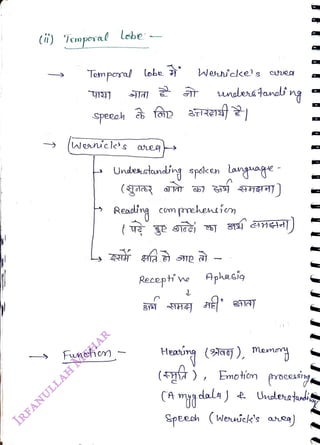 (ii) Temporal Lobe —
→ Temporal lobe में Wernicke's area
पाया जाता है जो understanding
speech के लिए उत्तरदायी है।
→ Wernicle's area
→ Understanding spoken language -
(सुनकर बातो का अर्थ समझना)
→ Reading comprehension
(पढ़े हुए शब्दों का अर्थ समझना)
→ इसमें क्षति हो जाए तो —
Receptive Aphasia
↓
अर्थ समझ नहीं आता
→ Function — Hearing (श्रवण), memory
(स्मृति), Emotion processing
(Amygdala) & Understanding
Speech (Wernicle's area)